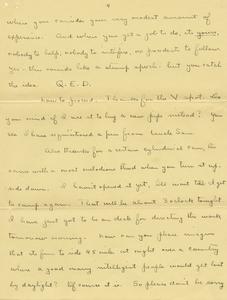 4
where you consider your very modest amount of
experience. And when you get a job to do, its yours,
nobody to help, nobody to criticize, no precedents to follow
yes - this sounds like a stump speech - but you catch
the idea. Q. E. D.
how to proceed. Thanks for the V spot.
your mind if I use it to buy a new pipe instead? You
see I have requisitioned a pen from Uncle Sam.
Also thanks for a certain cylindrical can, he
came with a most melodious thud when you turn it up-
side down. I haven't opened it yet, till I get
to camp again. That will be about 3 oclock tonight
I have just got to be on deck for directing the work
tomorrow morning. Now can you please imagine
that its fun to ride 45 miles at night over a country
where a good many intelligent people would get lost
by daylight? Of course it is. So please don't be sorry